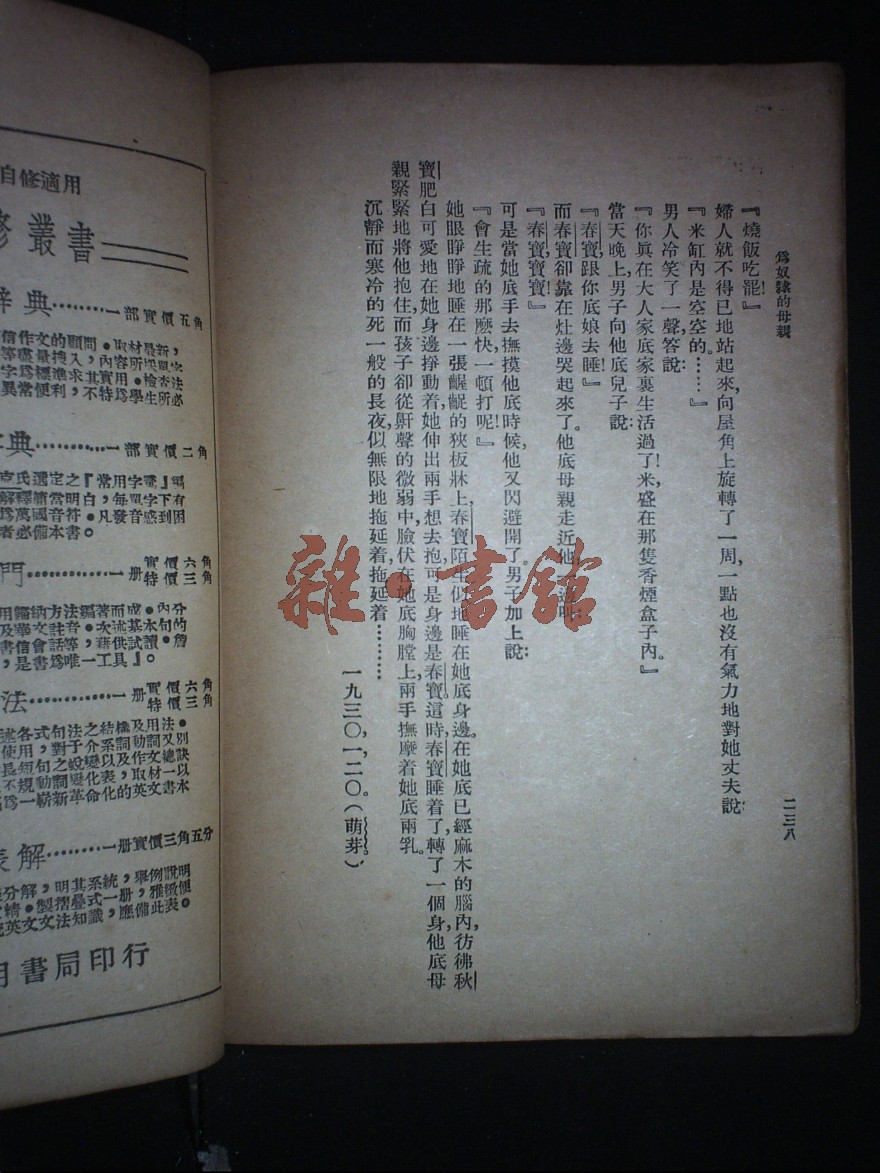 爲奴隸的母親
二三八
『燒飯吃罷！』
婦人就不得已地站起來，向屋角上旋轉了一周，一點也沒有氣力地對她丈夫說：
『米缸內是空空的。……』
男人冷笑了一聲，答說：
『你眞在大人家底家裏生活過了！米，盛在那隻香煙盒子內。』
當天晚上，男子向他底兒子說：
『春寶，跟你底娘去睡！』
而春寶卻靠在灶邊哭起來了。他底母親走近他，
『春寶，寶寶！』
可是當她底手去撫摸他底時候，他又閃避開了。男子加上說：
『會生疏的那麼快，一頓打呢！』
她眼睜睜地睡在一張齷齪的狹板牀上，春寶陌生似地睡在她底身邊。在她底已經麻木的腦內，彷彿秋
寶肥白可愛地在她身邊掙動着，她伸出兩手想去抱，可是身邊是春寶。這時，春寶睡着了，轉了一個身，他底母
親緊緊地將他抱住，而孩子卻從鼾聲的微弱中，臉伏在她底胸膛上，兩手撫摩着她底兩乳。
沉靜而寒冷的死一般的長夜，似無限地拖延着，拖延着…………
一九三〇，一，二〇。（萌芽。）
自修適用
叢書
辭典………一部實價五角
信作文的顧問。取材最新，
等盡量搜入，內容所
字爲標準求其實用。檢查法
異常便利，不特爲學生所必
典………一部實價二角
氏選定之『常用字
解釋簡當明白，每單字下有
爲萬國音符。凡發音感到困
者必備本書。
門………一册實價六角
特價三角
法………一册實價六角
特價三角
述各式句法之結構及動用法。
爲一嶄新革命化的英文書本
表解………一册實價三角五分
分解，明其系統，舉例說明
精。製摺疊式一册，雅緻便
英文文法知識，應備此表。
明書局印行
雜·書館